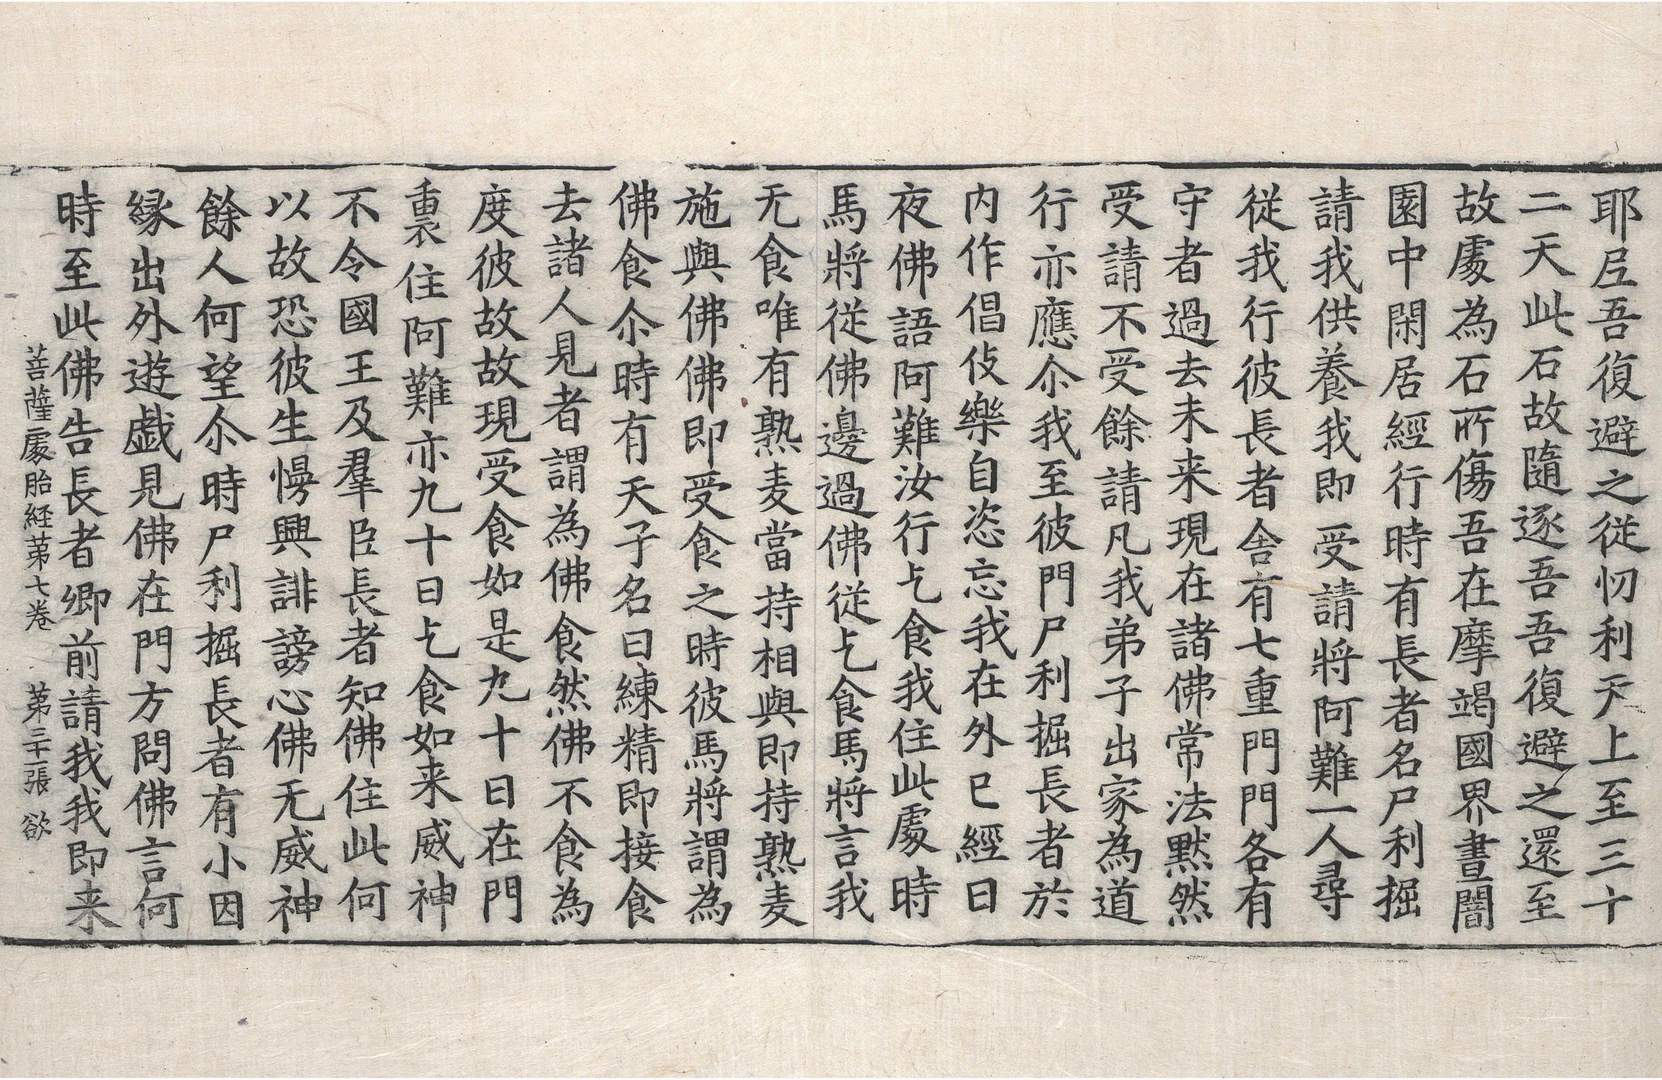 耶尼吾復避之從忉利天上至三十
二天此石故隨逐吾吾復避之還至
故處為石所傷吾在摩竭國界晝闇
園中閑居經行時有長者名尸利掘
請我供養我即受請將阿難一人尋
從我行彼長者舎有七重門門各有
守者過去未来現在諸佛常法黙然
受請不受餘請凡我弟子出家為道
行亦應尒我至彼門尸利掘長者於
内作倡伎樂自恣忘我在外已經日
夜佛語阿難汝行乞食我住此處時
馬將從佛邊過佛從乞食馬將言我
无食唯有熟麦當持相與即持熟麦
施與佛佛即受食之時彼馬將謂為
佛食尒時有天子名曰練精即接食
去諸人見者謂為佛食然佛不食為
度彼故故現受食如是九十日在門
裏住阿難亦九十日乞食如来威神
不令國王及羣臣長者知佛住此何
以故恐彼生慢興誹謗心佛无威神
餘人何望尒時尸利掘長者有小因
縁出外遊戯見佛在門方問佛言何
時至此佛告長者卿前請我我即来
菩薩處胎経苐七卷　苐三十二張　欲